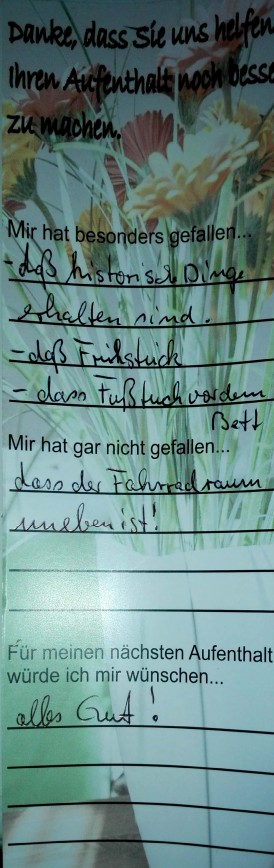 Danke, dass Sie uns helfen
Ihren Aufenthalt noch besse
zu machen.
Mir hat besonders gefallen...
- daß historisch Dinge
erhalten sind.
- daß Frühstück
- dass Fußtuch vor dem
Bett
Mir hat gar nicht gefallen...
dass der Fahrradraum
uneben ist!
Für meinen nächsten Aufenthalt
würde ich mir wünschen...
alles Gut!